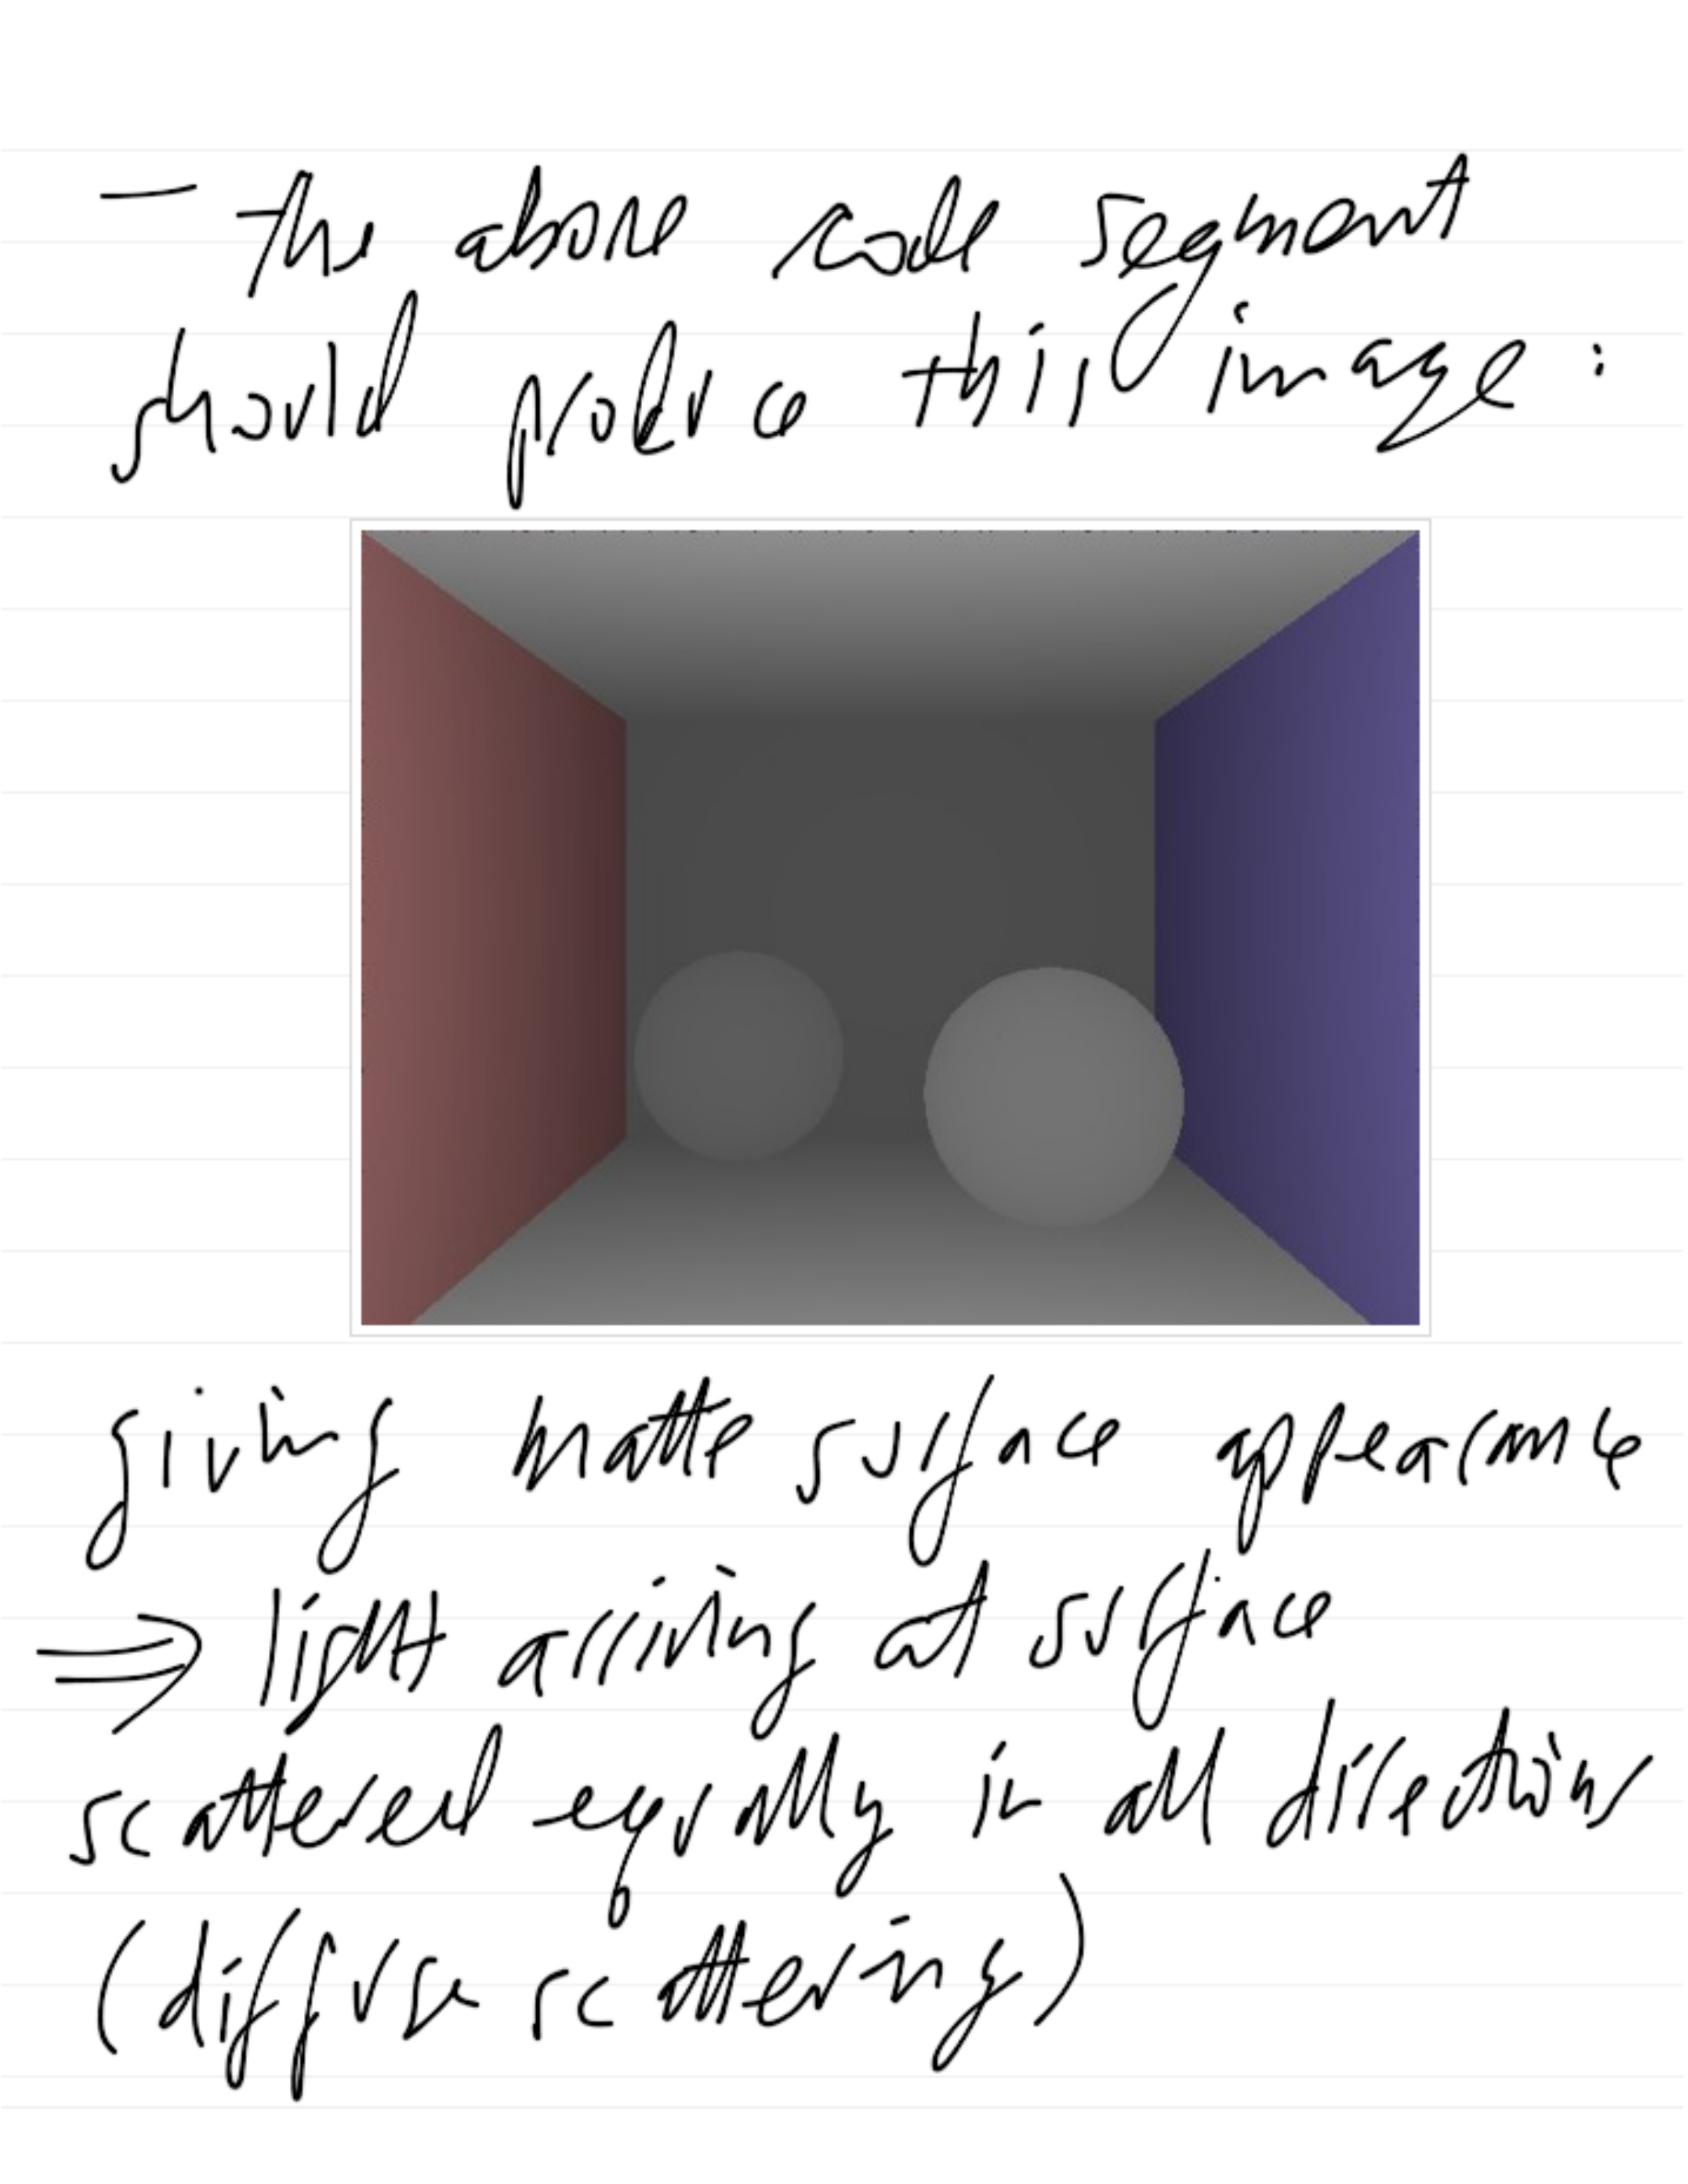 - The above code segment
should produce this image:
giving matte surface appearance
⇒ light arriving at surface
scattered equally in all directions
(diffuse scattering)